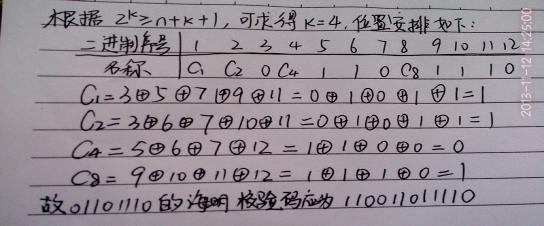 根据 2ᵏ≥n+k+1,可求得 k=4,位置安排如下:
二进制序号 1 2 3 4 5 6 7 8 9 10 11 12
名称 C₁ C₂ 0 C₄ 1 1 0 C₈ 1 1 1 0
C₁=3⊕5⊕7⊕9⊕11=0⊕1⊕0⊕1⊕1=1
C₂=3⊕6⊕7⊕10⊕11=0⊕1⊕0⊕1⊕1=1
C₄=5⊕6⊕7⊕12=1⊕1⊕0⊕0=0
C₈=9⊕10⊕11⊕12=1⊕1⊕1⊕0=1
故01101110的海明校验码应为 110011011110
2013-11-12 14:25:00